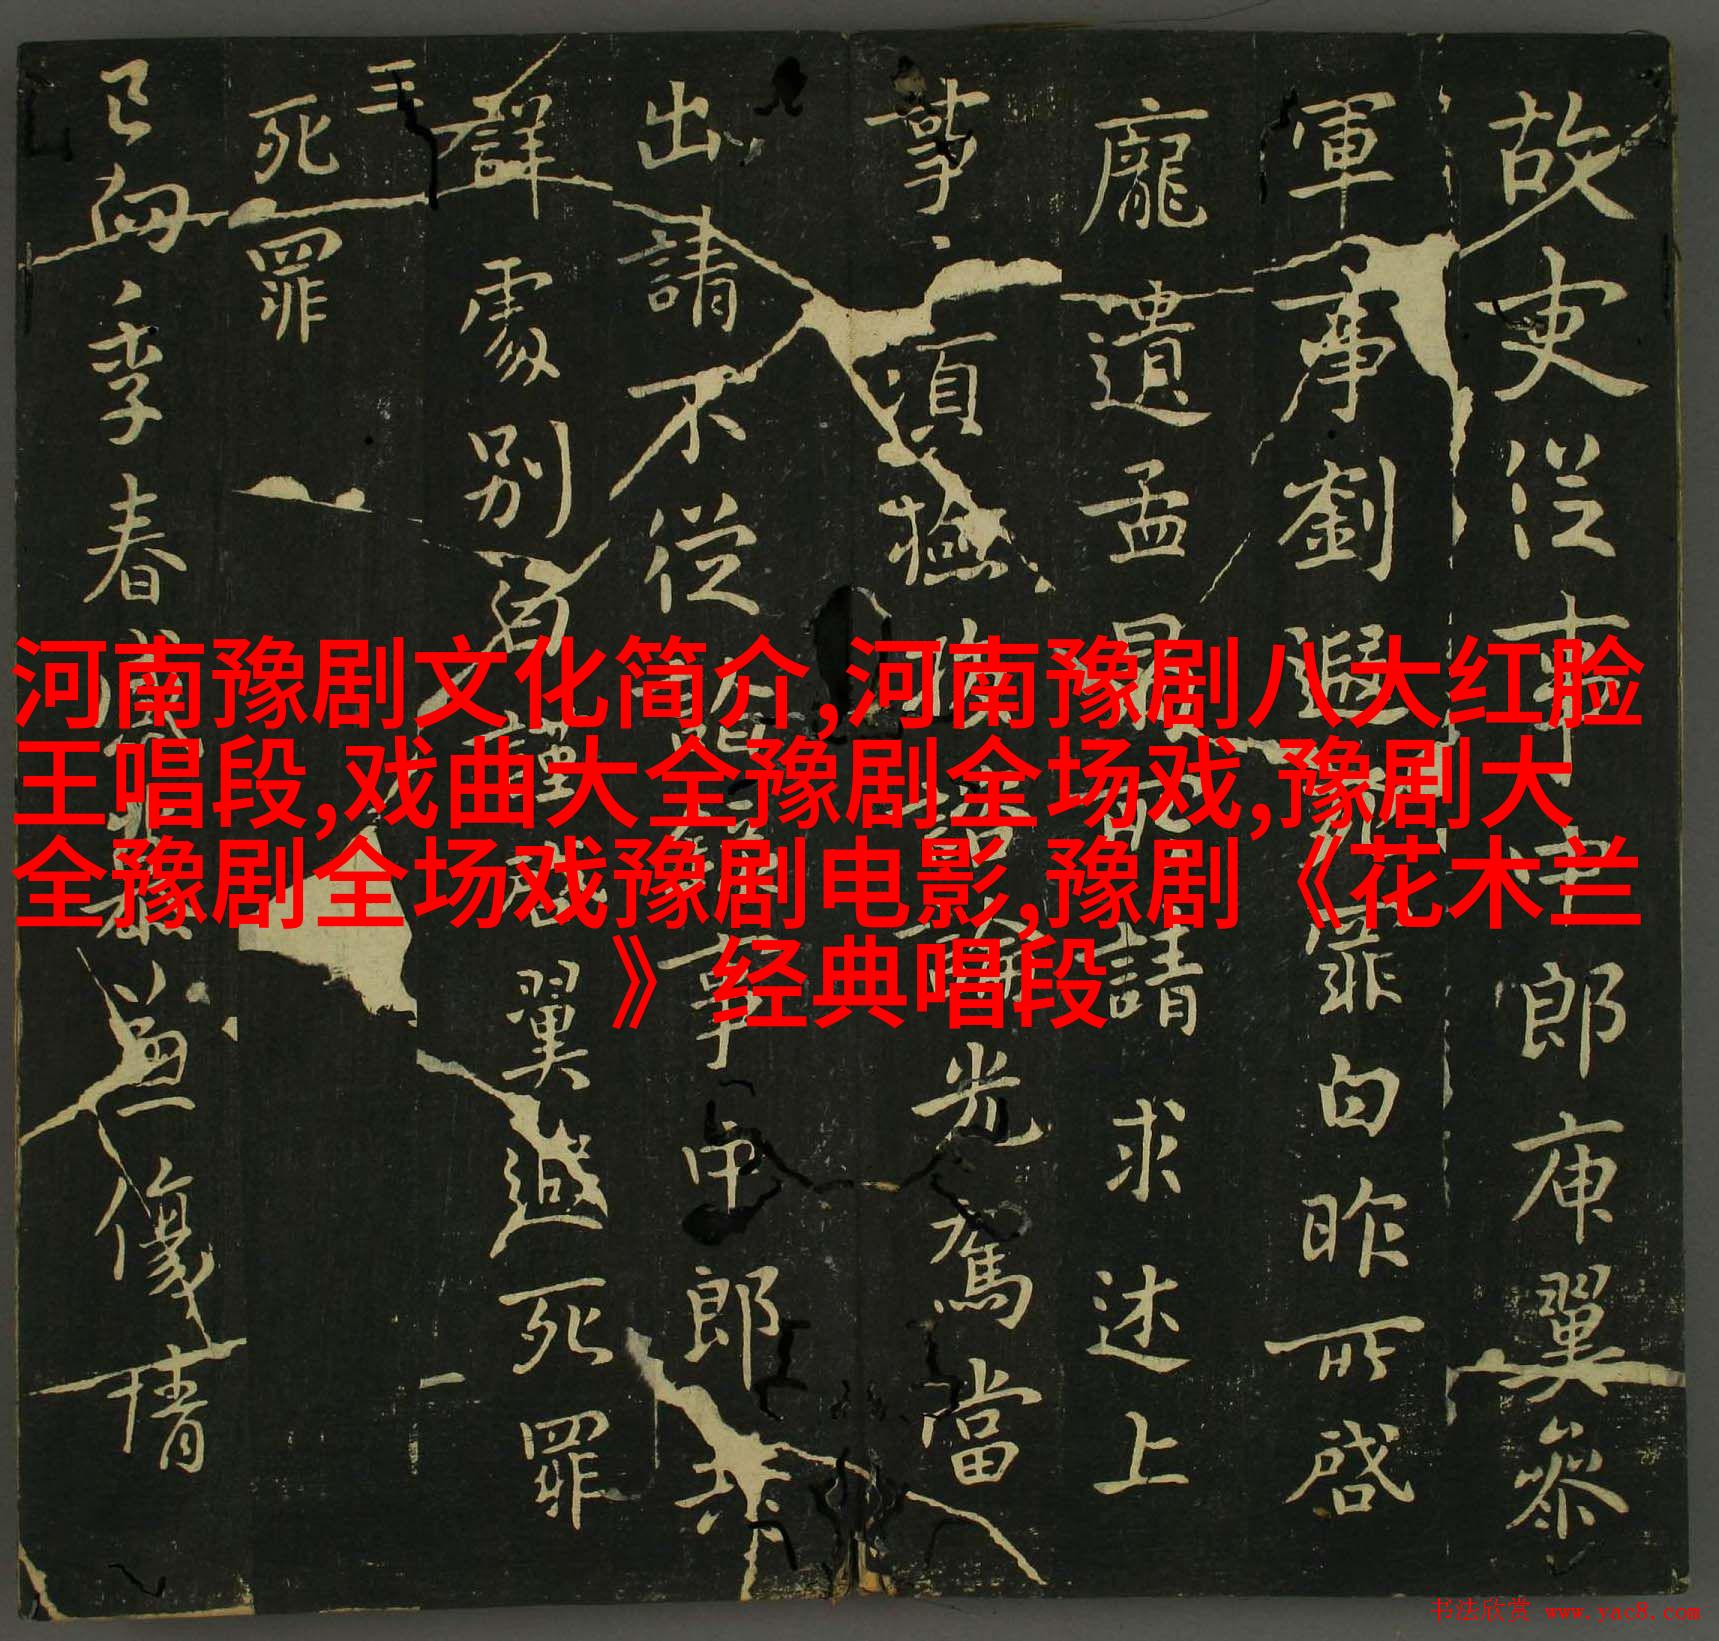 故吏從事中郎庾翼參
軍事劉遐死罪白昨所啓
龐遺孟請求述上
事須檢光駕當
出請不從事中郎共
詳處別白謹啓翼遐死罪
死罪
王
季春
河南豫剧文化简介,河南豫剧八大红脸
王唱段,戏曲大全豫剧全场戏,豫剧大
全豫剧全场戏豫剧电影,豫剧《花木兰
》经典唱段
书法欣赏 www.yac8.com